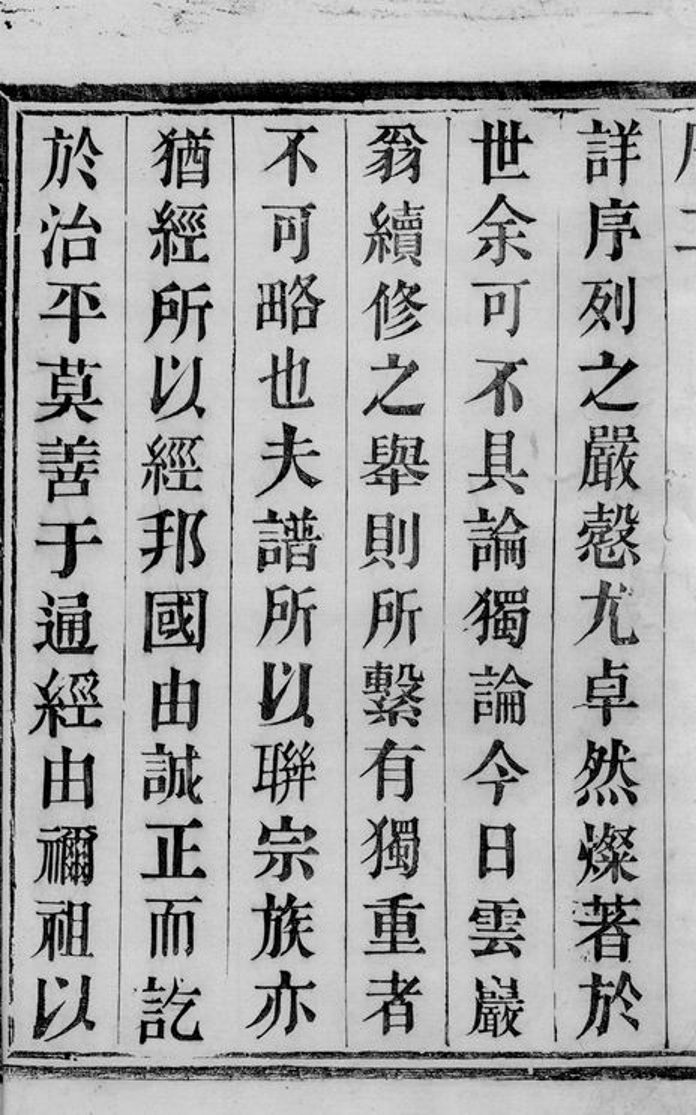 詳序列之嚴愨尤卓然燦著於
世余可不具論獨論今日雲巖
翁續修之舉則所繫有獨重者
不可略也夫譜所以聯宗族亦
猶經所以經邦國由誠正而訖
於治平莫善于通經由禰祖以